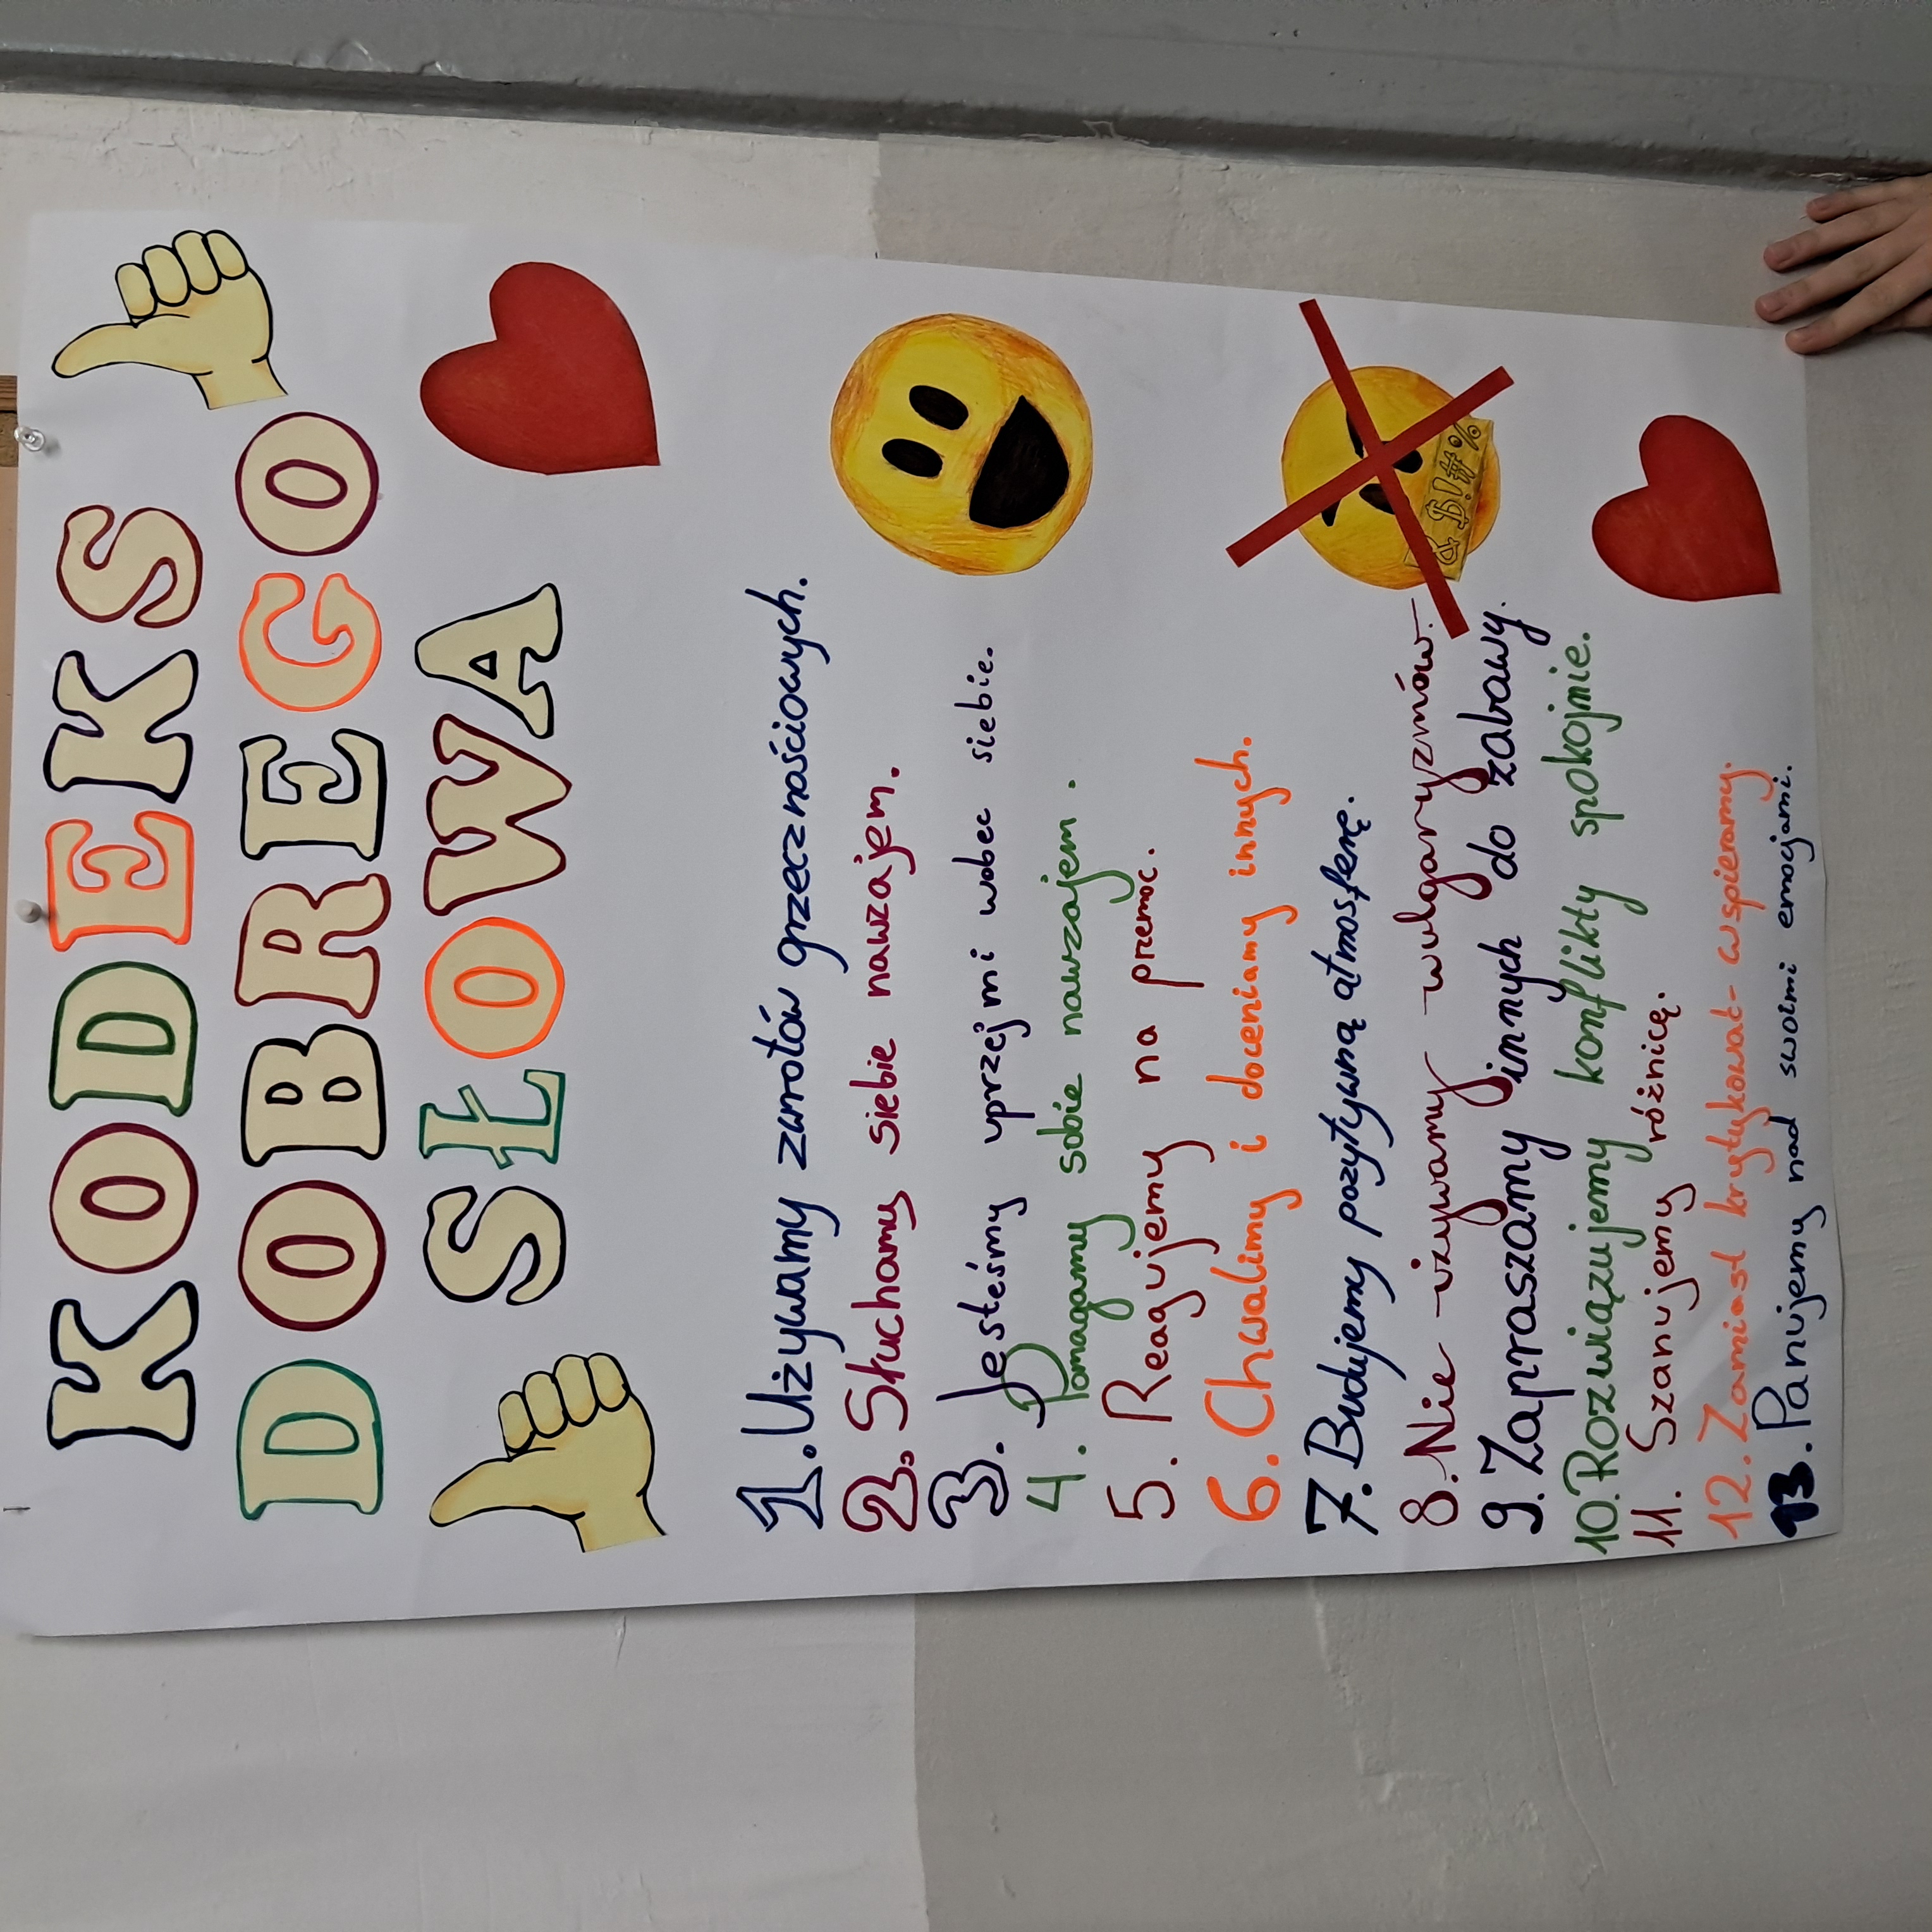 KODEKS
DOBREGO
SŁOWA
1. Używamy zwrotów grzecznościowych.
2. Słuchamy siebie nawzajem.
3. Jesteśmy uprzejmi wobec siebie.
4. Pomagamy sobie nawzajem.
5. Reagujemy na przemoc.
6. Chwalimy i doceniamy innych.
7. Budujemy pozytywną atmosferę.
8. Nie używamy wulgaryzmów.
& $!#%
9. Zapraszamy innych do zabawy.
10. Rozwiązujemy konflikty spokojnie.
11. Szanujemy różnicę.
12. Zamiast krytykować - wspieramy.
13. Panujemy nad swoimi emocjami.